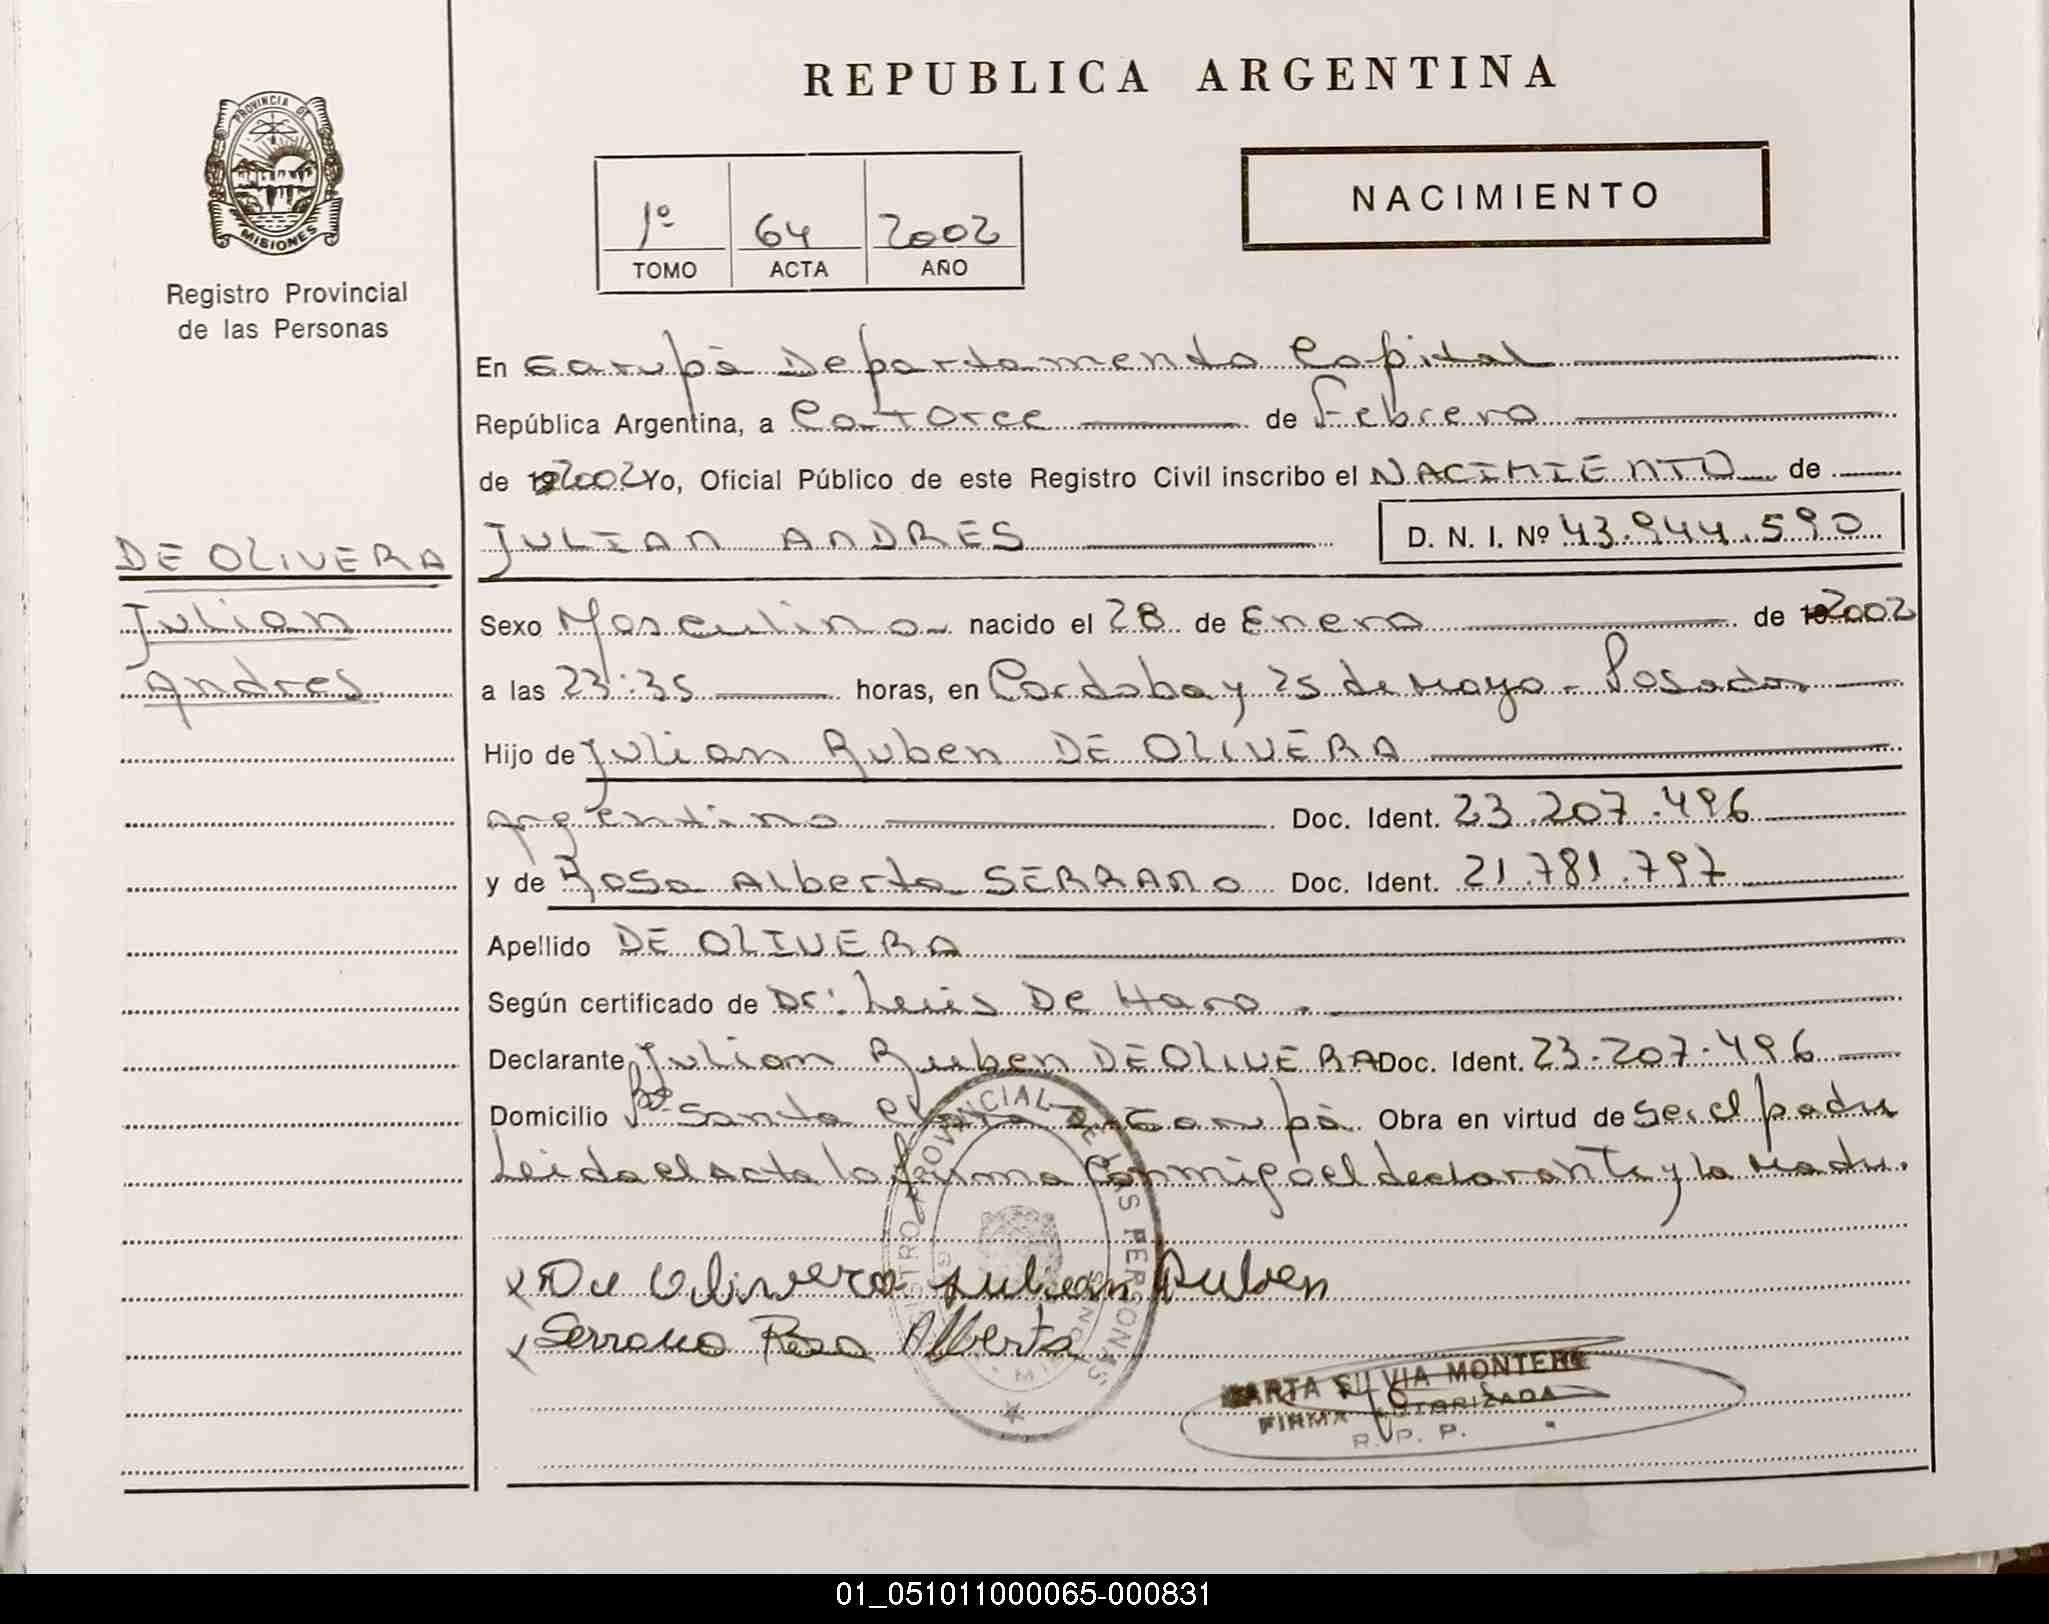 REPUBLICA ARGENTINA
PROVINCIA DE MISIONES
Registro Provincial
de las Personas
NACIMIENTO
1º 64 2002
TOMO ACTA AÑO
En Garupà Departamento Capital
República Argentina, a Catorce de Febrero
de 19 2002 Yo, Oficial Público de este Registro Civil inscribo el NACIMIENTO de
DE OLIVERA
Julian
Andres
JULIAN ANDRES D. N. I. Nº 43.944.590
Sexo Masculino nacido el 28 de Enero de 19 2002
a las 23:35 horas, en Cordoba y 25 de Mayo - Posadas
Hijo de Julian Ruben DE OLIVERA
Argentino Doc. Ident. 23.207.496
y de Rosa Alberta SERRANO Doc. Ident. 21.781.797
Apellido DE OLIVERA
Según certificado de Dr: Luis De Haro.
Declarante Julian Ruben DE OLIVERA Doc. Ident. 23.207.496
Domicilio Bº Santa Garupà Obra en virtud de ser el padre
Leida el Acta la firma Conmigo el declarante y la Madre.
x De Olivera Julian Ruben
x Serrano Rosa Alberta
REGISTRO PROVINCIAL DE LAS PERSONAS
MARTA SILVIA MONTERO
FIRMA AUTORIZADA
R. P. P.
01_051011000065-000831